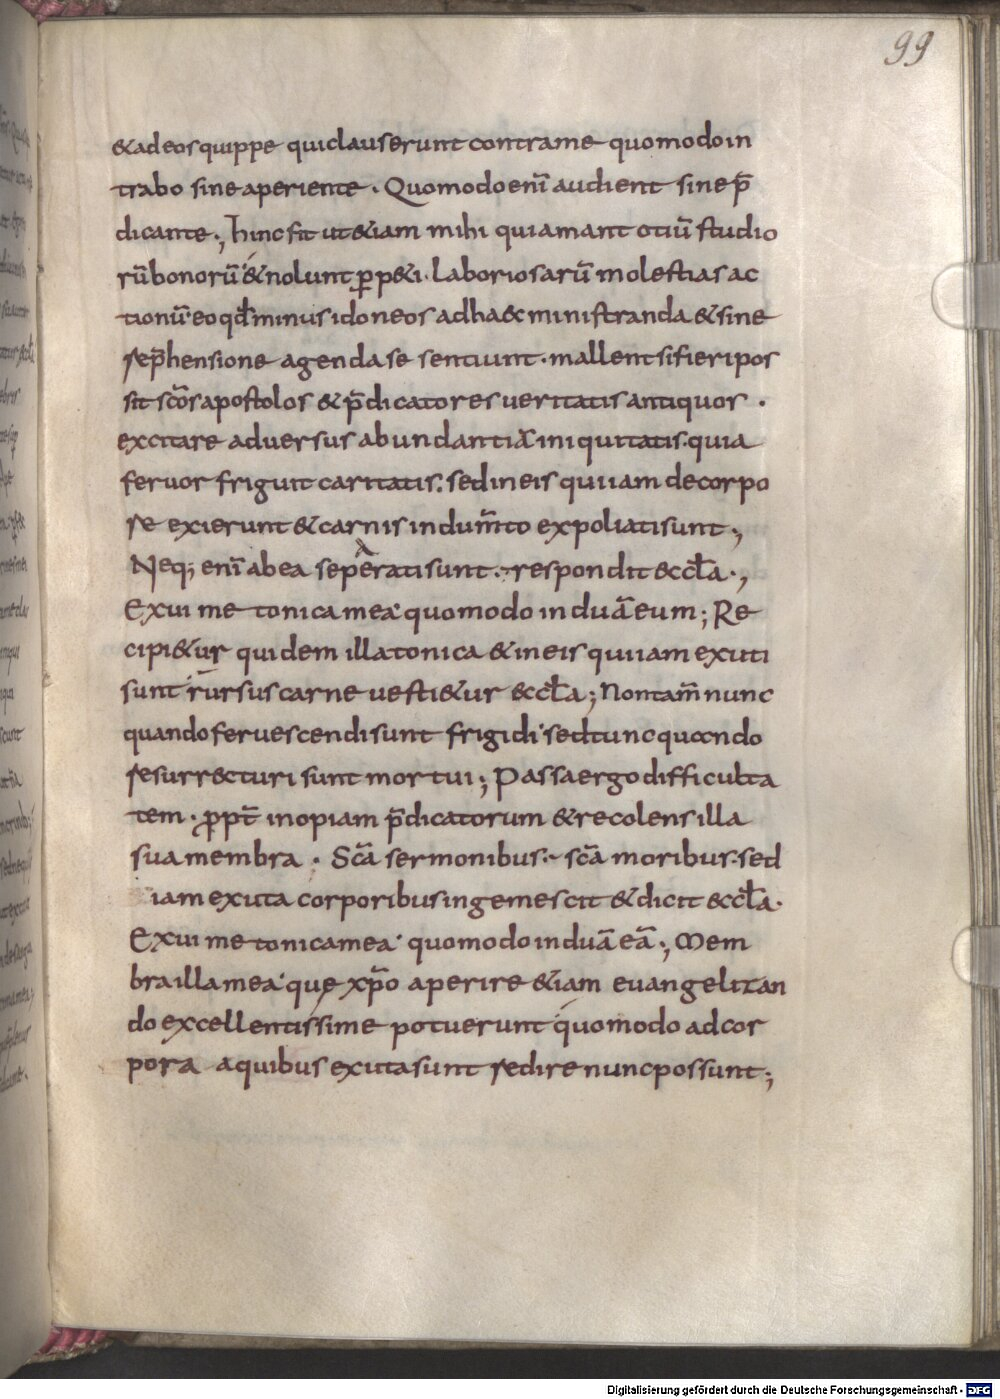 99
&ad eos quippe qui clauserunt contra me quomodo in
trabo sine aperiente · Quomodo enī audient sine p̄
dicante ; hinc fit ut &iam mihi qui amant otiū studio
rū bonorū & nolunt ꝑp&i · laboriosarū molestias ac
tionū eo qđ minus idoneos ad haec ministranda & sine
rep̄hensione agenda se sentiunt · mallent si fieri pos
sit sc̄os apostolos & p̄dicatores ueritatis antiquor ·
excitare aduersus abundantiā iniquitatis · quia
feruor friguit caritatis : sed in eis qui iam de corpo
re exierunt & carnis indum̄to expoliati sunt ;
Neq; enī ab ea seperati sunt · respondit eccła ·,
Exui me tonica mea quomodo induā eum ; Re
cipi&ur quidem illa tonica & in eis qui iam exuti
sunt rursus carne uesti&ur eccła ; Non tam̄ nunc
quando feruescendi sunt frigidi sed tunc quando
resurrecturi sunt mortui ; Passa ergo difficulta
tem · ꝓpt̄ inopiam p̄dicatorum & recolens illa
sua membra · Sc̄a sermonibus · sc̄a moribus · sed
iam exuta corporibus ingemescit & dicit eccła ·
Exui me tonica mea quomodo induā eā ; Mem
bra illa mea que xp̄o aperire &iam euangelizan
do excellentissime potuerunt quomodo ad cor
pora a quibus exuta sunt redire nunc possunt ;
Digitalisierung gefördert durch die Deutsche Forschungsgemeinschaft - DFG